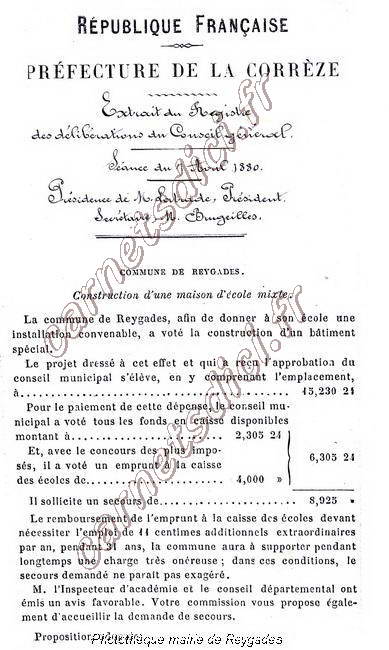 RÉPUBLIQUE FRANÇAISE
PRÉFECTURE DE LA CORRÈZE
Extrait du Registre
des délibérations du Conseil général.
Séance du Avril 1880.
Présidence de M. Président.
Secrétaire M. Brugeilles.
COMMUNE DE REYGADES.
Construction d'une maison d'école mixte.
La commune de Reygades, afin de donner à son école une
installation convenable, a voté la construction d'un bâtiment
spécial.
Le projet dressé à cet effet et qui a reçu l'approbation du
conseil municipal s'élève, en y comprenant l'emplacement,
à 15,230 24
Pour le paiement de cette dépense, le conseil mu-
nicipal a voté tous les fonds en caisse disponibles
montant à 2,305 24
Et, avec le concours des plus impo-
sés, il a voté un emprunt à la caisse 6,305 24
des écoles de 4,000 »
Il sollicite un secours de 8,925 »
Le remboursement de l'emprunt à la caisse des écoles devant
nécessiter l'emploi de 11 centimes additionnels extraordinaires
par an, pendant 31 ans, la commune aura à supporter pendant
longtemps une charge très onéreuse ; dans ces conditions, le
secours demandé ne paraît pas exagéré.
M. l'Inspecteur d'académie et le conseil départemental ont
émis un avis favorable. Votre commission vous propose égale-
ment d'accueillir la demande de secours.
Proposition
Photothèque mairie de Reygades
carnetsdici.fr
carnetsdici.fr